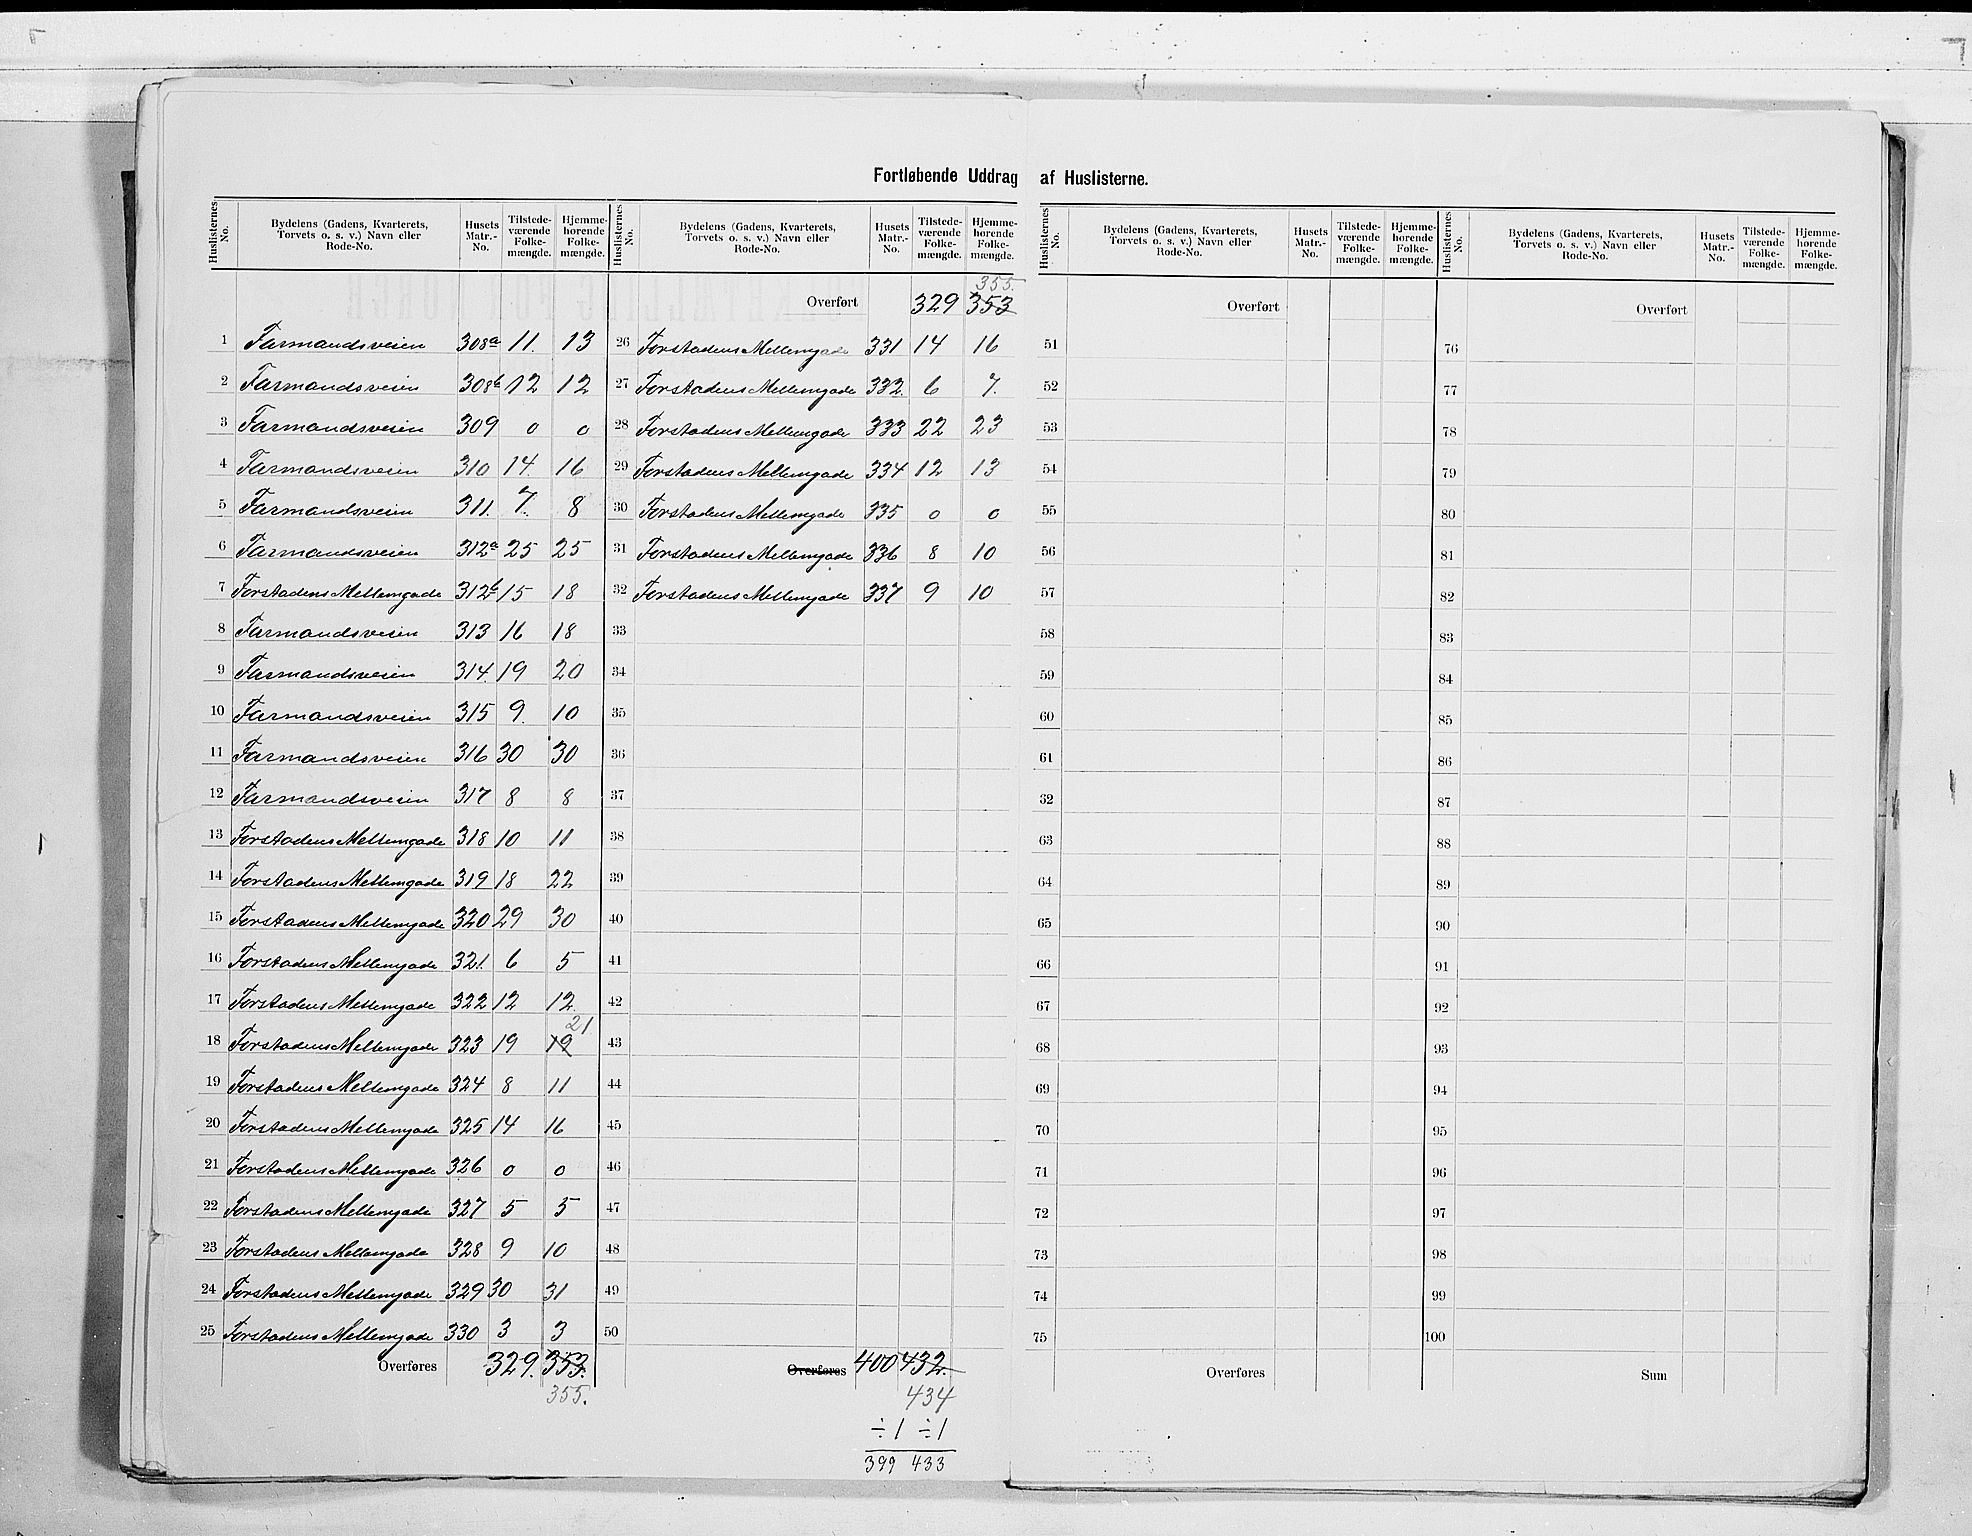 Fortløbende Uddrag af Huslisterne.
Huslisternes No. | Bydelens (Gadens, Kvarterets, Torvets o. s. v.) Navn eller Rode-No. | Husets Matr.-No. | Tilstedeværende Folkemængde. | Hjemmehørende Folkemængde.
1 Farmandsveien 308a 11. 13
2 Farmandsveien 308b 12 12
3 Farmandsveien 309 0 0
4 Farmandsveien 310 14. 16
5 Farmandsveien 311. 7. 8
6 Farmandsveien 312a 25 25
7 Forstadens Mellemgade 312b 15 18
8 Farmandsveien 313 16 18
9 Farmandsveien 314. 19 20
10 Farmandsveien 315 9. 10
11 Farmandsveien 316 30 30
12 Farmandsveien 317 8 8
13 Forstadens Mellemgade 318 10 11
14 Forstadens Mellemgade 319 18 22
15 Forstadens Mellemgade 320 29 30
16 Forstadens Mellemgade 321. 6 5
17 Forstadens Mellemgade 322 12 12.
18 Forstadens Mellemgade 323 19 19 21
19 Forstadens Mellemgade 324 8 11
20 Forstadens Mellemgade 325 14 16
21 Forstadens Mellemgade 326 0 0
22 Forstadens Mellemgade 327 5 5
23 Forstadens Mellemgade 328 9 10
24 Forstadens Mellemgade 329 30 31
25 Forstadens Mellemgade 330 3 3
Overføres 329. 353.
355.
Huslisternes No. | Bydelens (Gadens, Kvarterets, Torvets o. s. v.) Navn eller Rode-No. | Husets Matr.-No. | Tilstedeværende Folkemængde. | Hjemmehørende Folkemængde.
355.
Overført 329 353
26 Forstadens Mellemgade 331 14 16
27 Forstadens Mellemgade 332. 6 7.
28 Forstadens Mellemgade 333 22 23
29 Forstadens Mellemgade 334 12 13
30 Forstadens Mellemgade 335 0 0
31 Forstadens Mellemgade 336 8 10
32 Forstadens Mellemgade 337 9 10
33
34
35
36
37
38
39
40
41
42
43
44
45
46
47
48
49
50
Overføres 400 432.
434
÷1 ÷1
399 433
Huslisternes No. | Bydelens (Gadens, Kvarterets, Torvets o. s. v.) Navn eller Rode-No. | Husets Matr.-No. | Tilstedeværende Folkemængde. | Hjemmehørende Folkemængde.
Overført
51
52
53
54
55
56
57
58
59
60
61
32
63
64
65
66
67
68
69
70
71
72
73
74
75
Overføres
Huslisternes No. | Bydelens (Gadens, Kvarterets, Torvets o. s. v.) Navn eller Rode-No. | Husets Matr.-No. | Tilstedeværende Folkemængde. | Hjemmehørende Folkemængde.
Overført
76
77
78
79
80
81
82
83
84
85
86
87
88
89
90
91
92
93
94
95
96
97
98
99
100
Sum